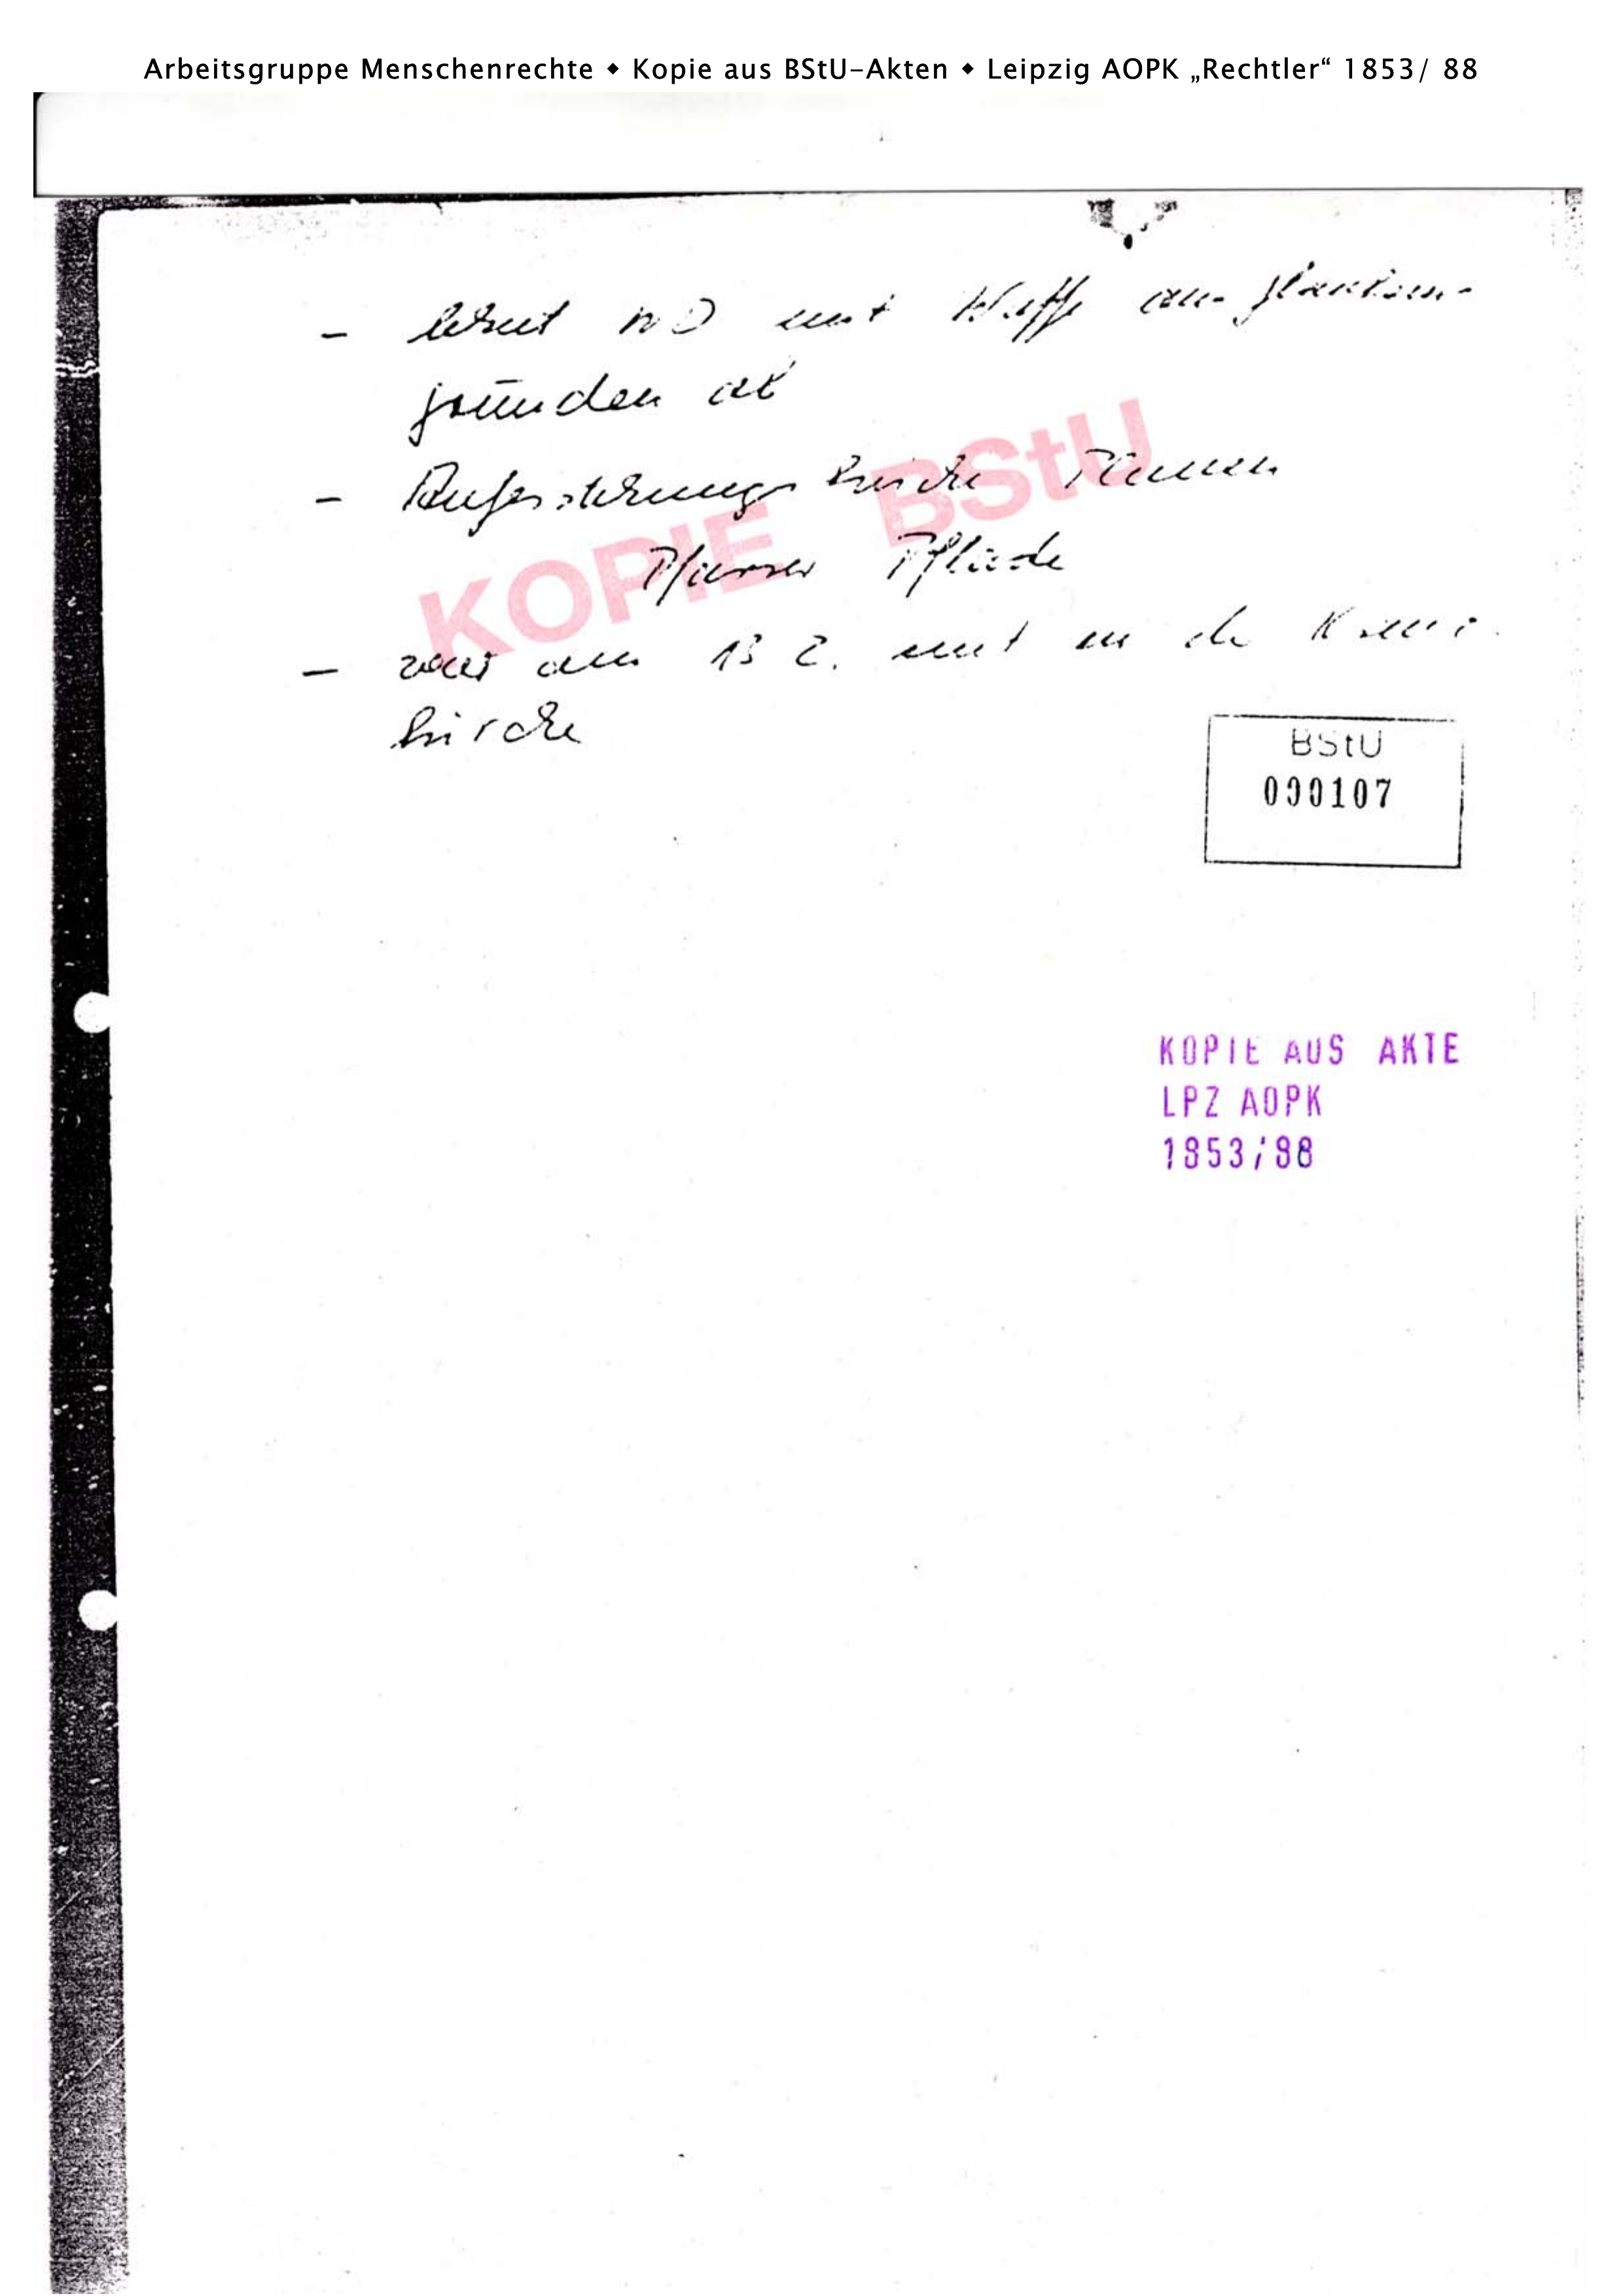 Arbeitsgruppe Menschenrechte ◆ Kopie aus BStU-Akten ◆ Leipzig AOPK „Rechtler“ 1853/ 88
- lehnt WD mit Waffe aus Glaubens-
gründen ab
- Auferstehungskirche Plauen
Pfarrer
- war am 13 2. mit in der
kirche
KOPIE BStU
BStU
000107
KOPIE AUS AKTE
LPZ AOPK
1853/88